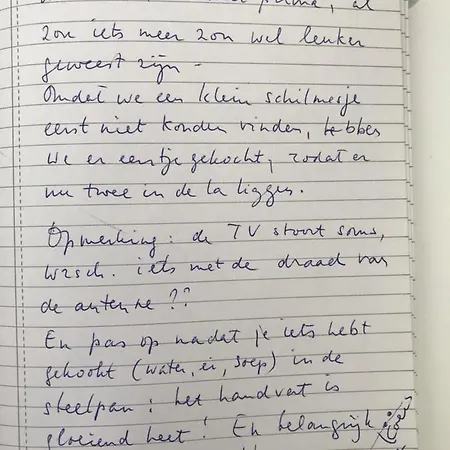 prima, al
zou iets meer zon wel leuker
geweest zijn -
Omdat we een klein schilmesje
eerst niet konden vinden, hebben
we er eentje gekocht, zodat er
nu twee in de la liggen.
Opmerking: de TV stoort soms,
wrsch. iets met de draad van
de antenne ??
En pas op nadat je iets hebt
gekookt (water, ei, soep) in de
steelpan: het handvat is
gloeiend heet! En belangrijk